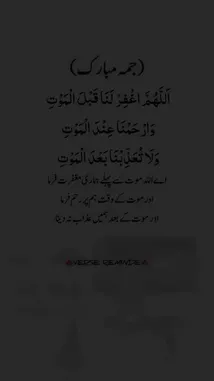 (جمعہ مبارک)
اَللّٰهُمَّ اغْفِرْ لَنَا قَبْلَ الْمَوْتِ
وَارْحَمْنَا عِنْدَ الْمَوْتِ
وَلَا تُعَذِّبْنَا بَعْدَ الْمَوْتِ
اے اللہ موت سے پہلے ہماری مغفرت فرما
اور موت کے وقت ہم پر رحم فرما
اور موت کے بعد ہمیں عذاب نہ دینا